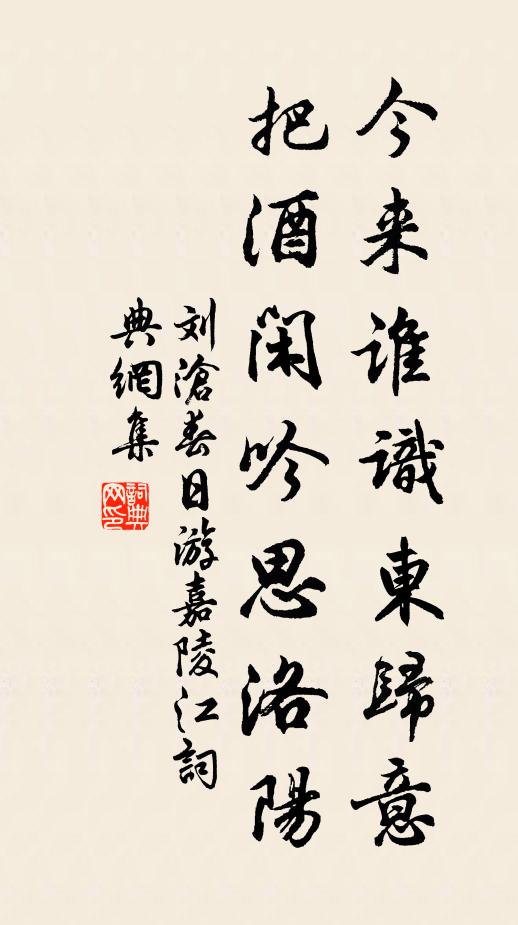 今来誰識東歸意
把酒閑吟思洛陽
刘滄春日游嘉陵江詞
典網集
詞典
网印